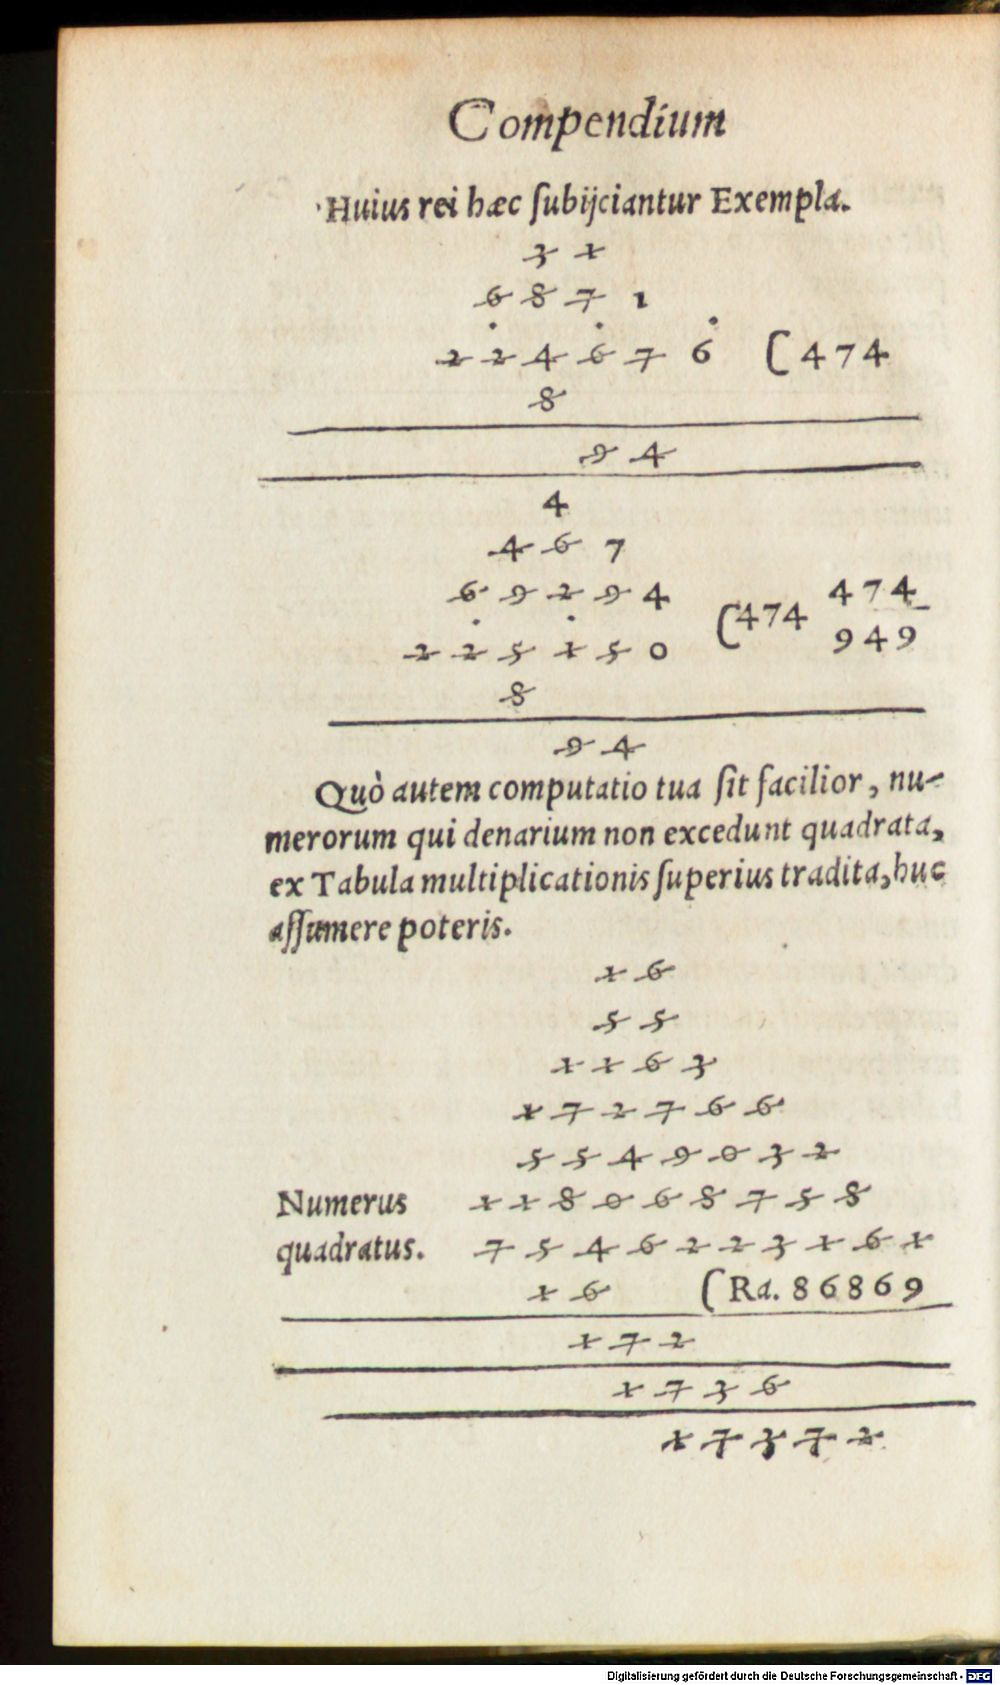 Compendium
Huius rei hæc ſubijciantur Exempla.
3 1
6 8 7 1
2 2 4 6 7 6 (474
8
9 4
4
4 6 7
6 9 2 9 4
2 2 5 1 5 0 (474 474
949
8
9 4
Quò autem computatio tua ſit facilior, nu-
merorum qui denarium non excedunt quadrata,
ex Tabula multiplicationis ſuperius tradita, huc
aſſumere poteris.
1 6
5 5
1 1 6 3
1 7 2 7 6 6
5 5 4 9 0 3 2
Numerus 1 1 8 0 6 8 7 5 8
quadratus. 7 5 4 6 2 2 3 1 6 1
1 6 (Ra. 86869
1 7 2
1 7 3 6
1 7 3 7 2
Digitalisierung gefördert durch die Deutsche Forschungsgemeinschaft - DFG